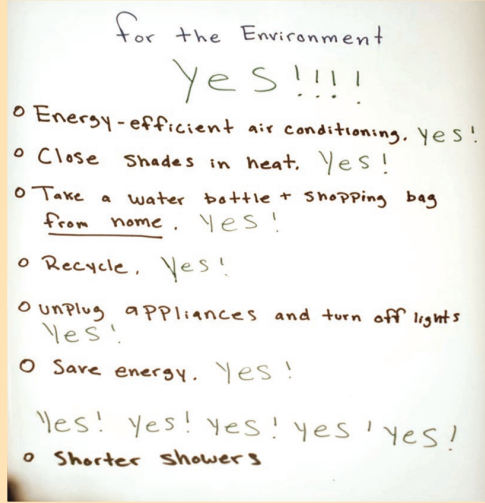 for the Environment
Yes!!!!
o Energy-efficient air conditioning. Yes!
o Close Shades in heat. Yes!
o Take a water bottle + Shopping bag
from home. Yes!
o Recycle. Yes!
o unplug appliances and turn off lights
Yes!
o Save energy. Yes!
Yes! Yes! Yes! Yes! Yes!
o Shorter Showers